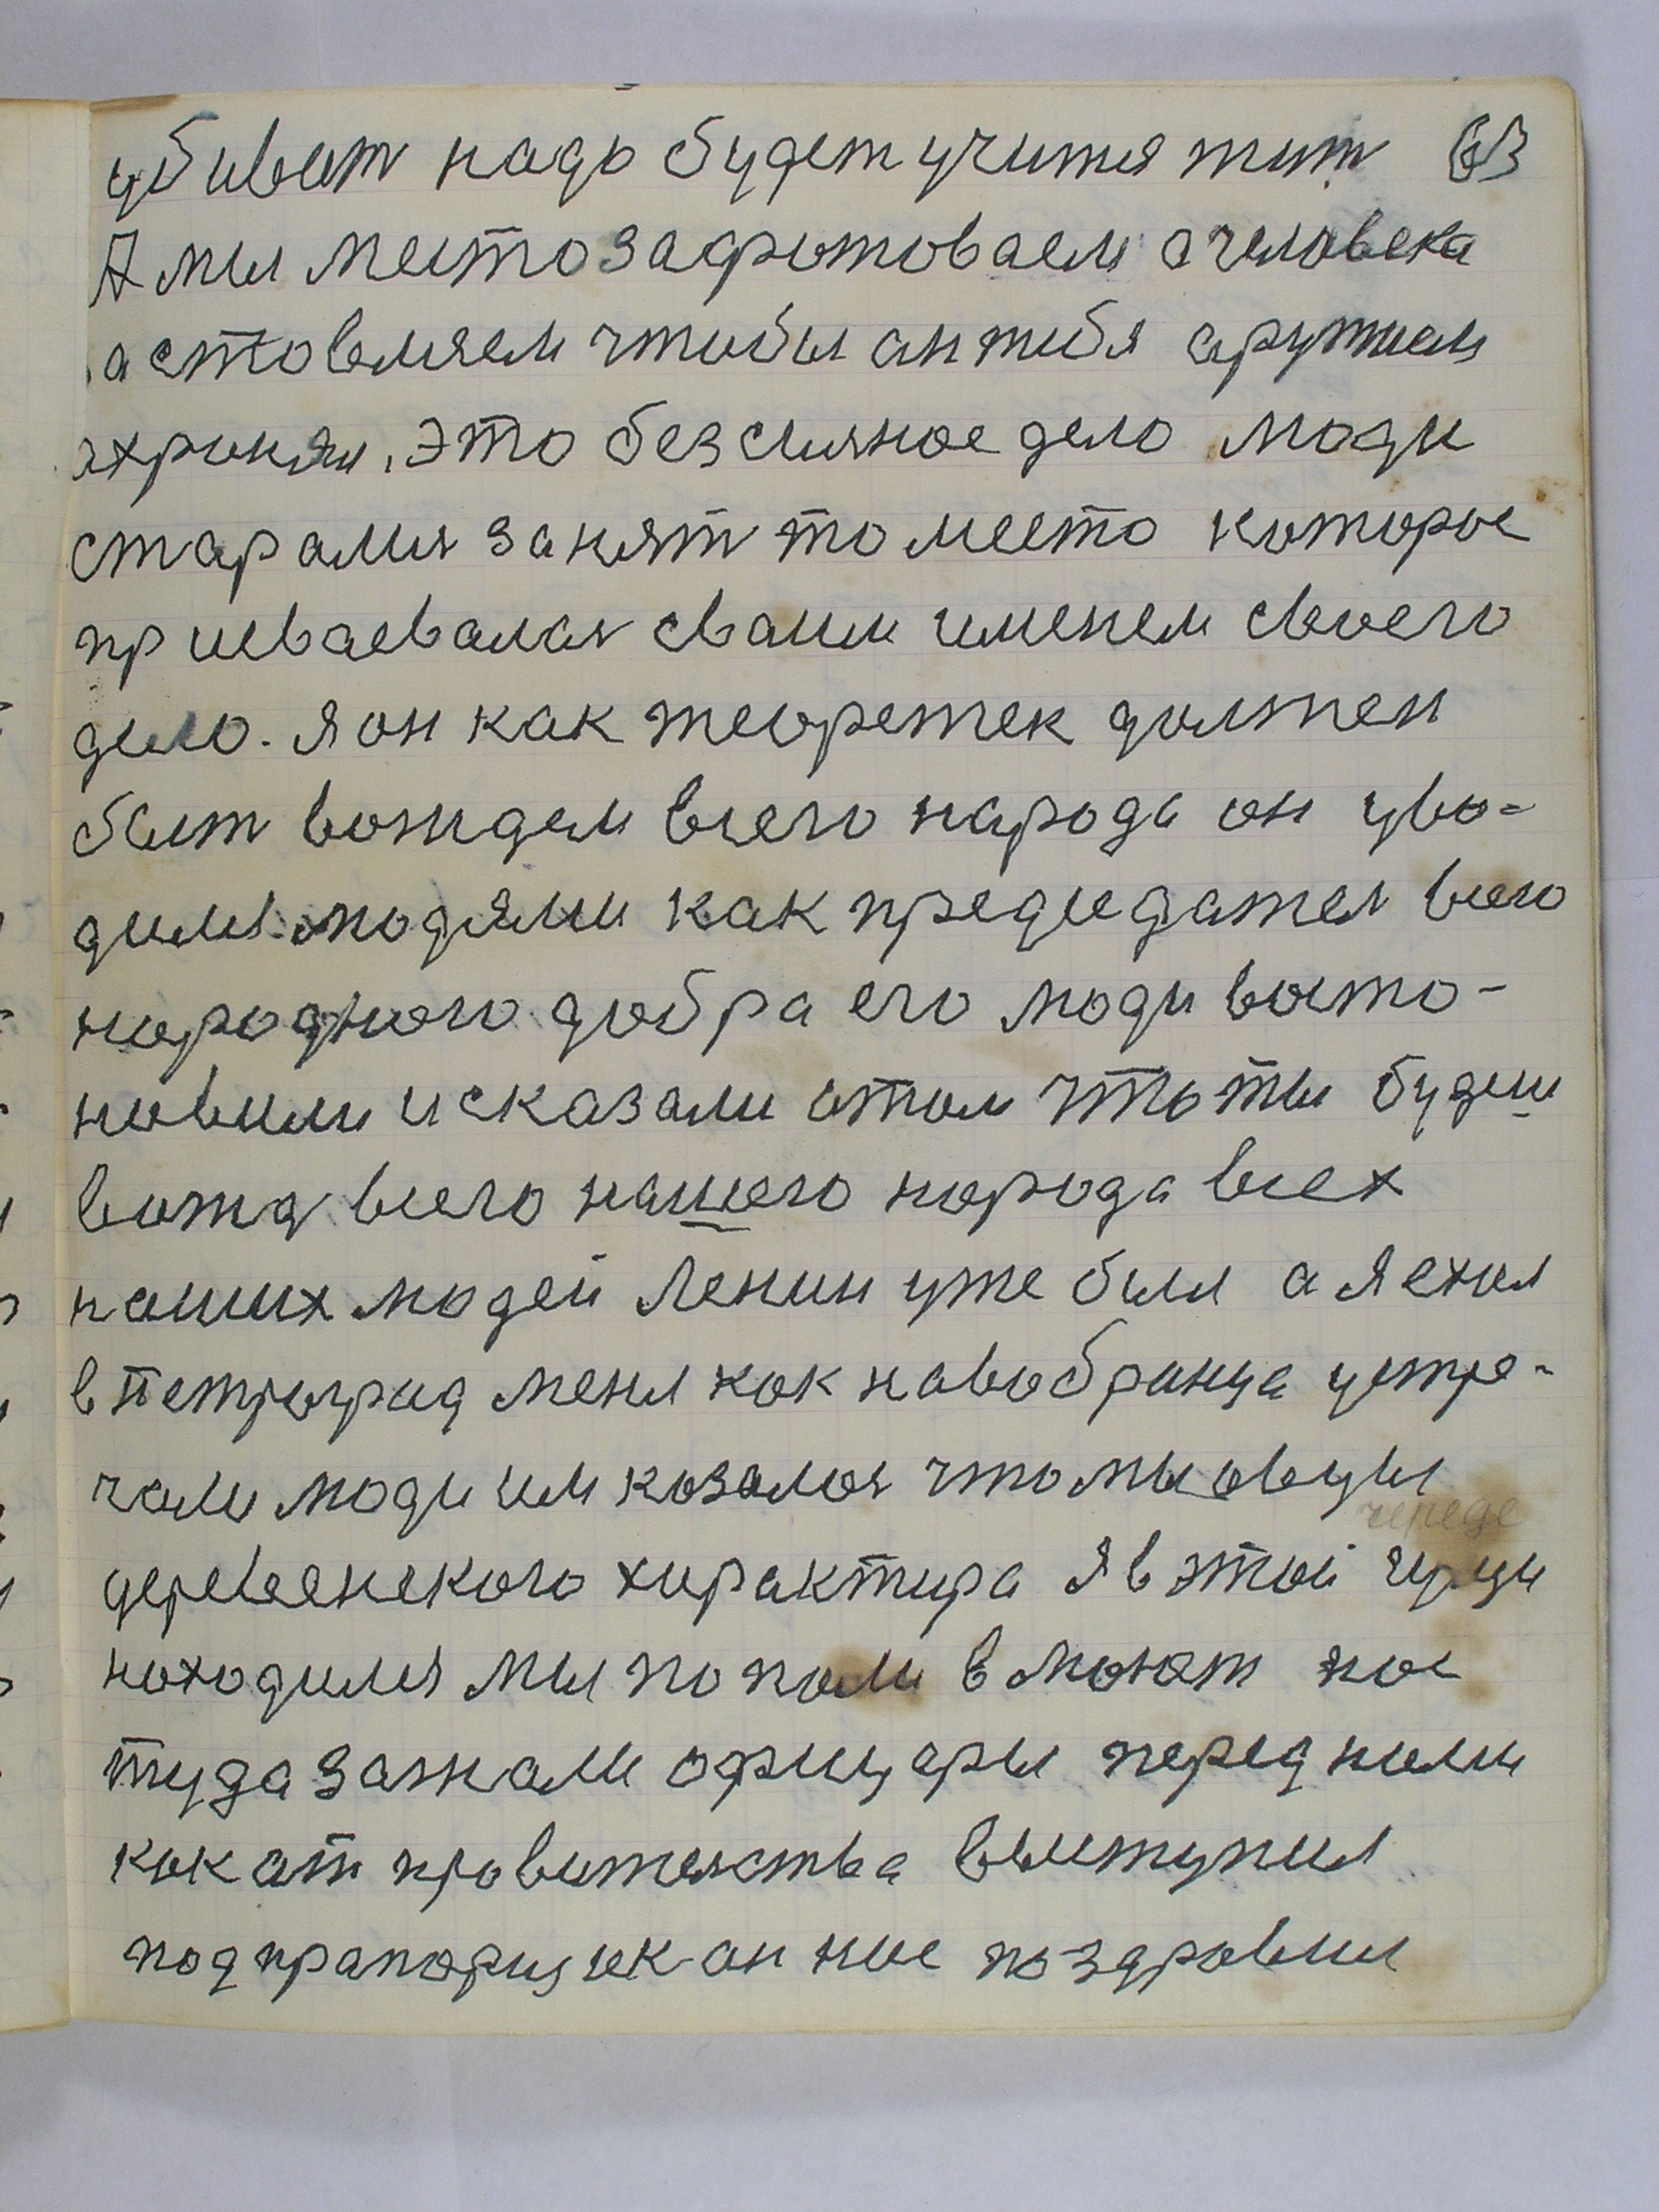 убиват надо будет учится жит 63
А мы место зафотоваем а человека
аставляем чтобы ан тибя аружием
охранял. Это безсилное дело люди
старалис занят то место которое
присваевалас сваим именем своего
дела. Я он как теоретек должен
быт вождем всего народа он уво-
дилс людями как председател всего
народного добра его люди восто-
новили и сказали отом что ты будеш
вожд всего нашого народа всех
наших людей Ленин уже был а я ехал
в Петроград меня как навобранца устре-
чали люди им козалос что мы овцы
череде
деревенского характира я в этой череди
находился мы попали в манеж нас
туда зажали офицеры перед нами
как от правителства выступил
подпрапорщик он нас поздравил